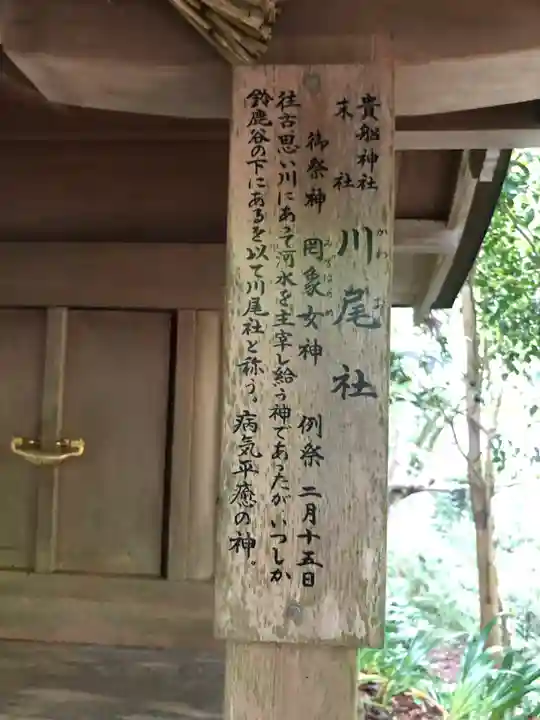 貴船神社
末社
川尾社
かわお
御祭神 罔象女神 例祭 二月十五日
みづはのめ
往古思い川にあって河水を主宰し給う神であったがいつしか
鈴鹿谷の下にあるを以て川尾社と称う。病気平癒の神。